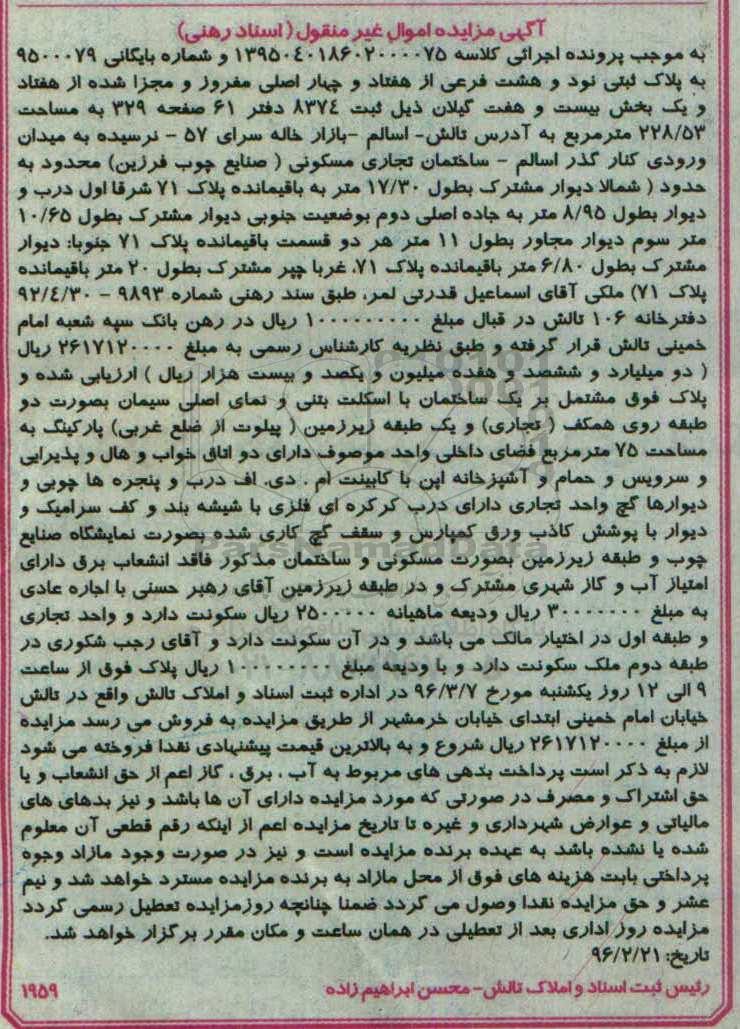 آگهی مزایده اموال غیر منقول (اسناد رهنی)
به موجب پرونده اجرائی کلاسه ۱۳۹۵۰۴۰۱۸۶۰۲۰۰۰۰۷۵ و شماره بایگانی ۹۵۰۰۰۷۹
به پلاک ثبتی نود و هشت فرعی از هفتاد و چهار اصلی مفروز و مجزا شده از هفتاد
و یک بخش بیست و هفت گیلان ذیل ثبت ۸۳۷٤ دفتر ۶۱ صفحه ۳۲۹ به مساحت
۲۲۸/۵۳ مترمربع به آدرس تالش- اسالم -بازار خاله سرای ۵۷ - نرسیده به میدان
ورودی کنار گذر اسالم - ساختمان تجاری مسکونی ( صنایع چوب فرزین) محدود به
حدود ( شمالا دیوار مشترک بطول ۱۷/۳۰ متر به باقیمانده پلاک ۷۱ شرقا اول درب و
دیوار بطول ۸/۹۵ متر به جاده اصلی دوم بوضعیت جنوبی دیوار مشترک بطول ۱۰/۶۵
متر سوم دیوار مجاور بطول ۱۱ متر هر دو قسمت باقیمانده پلاک ۷۱ جنوبا: دیوار
مشترک بطول ۶/۸۰ متر باقیمانده پلاک ۷۱، غربا چپر مشترک بطول ۲۰ متر باقیمانده
پلاک ۷۱) ملکی آقای اسماعیل قدرتی لمر، طبق سند رهنی شماره ۹۸۹۳ - ۹۲/٤/۳۰
دفترخانه ۱۰۶ تالش در قبال مبلغ ۱۰۰۰۰۰۰۰۰۰ ریال در رهن بانک سپه شعبه امام
خمینی تالش قرار گرفته و طبق نظریه کارشناس رسمی به مبلغ ۲۶۱۷۱۲۰۰۰۰ ریال
( دو میلیارد و ششصد و هفده میلیون و یکصد و بیست هزار ریال ) ارزیابی شده و
پلاک فوق مشتمل بر یک ساختمان با اسکلت بتنی و نمای اصلی سیمان بصورت دو
طبقه روی همکف ( تجاری) و یک طبقه زیرزمین ( پیلوت از ضلع غربی) پارکینگ به
مساحت ۷۵ مترمربع فضای داخلی واحد موصوف دارای دو اتاق خواب و هال و پذیرایی
و سرویس و حمام و آشپزخانه اپن با کابینت ام . دی. اف درب و پنجره ها چوبی و
دیوارها گچ واحد تجاری دارای درب کرکره ای فلزی با شیشه بند و کف سرامیک و
دیوار با پوشش کاذب ورق کمپارس و سقف گچ کاری شده بصورت نمایشگاه صنایع
چوب و طبقه زیرزمین بصورت مسکونی و ساختمان مذکور فاقد انشعاب برق دارای
امتیاز آب و گاز شهری مشترک و در طبقه زیرزمین آقای رهبر حسنی با اجاره عادی
به مبلغ ۳۰۰۰۰۰۰۰ ریال ودیعه ماهیانه ۲۵۰۰۰۰۰ ریال سکونت دارد و واحد تجاری
و طبقه اول در اختیار مالک می باشد و در آن سکونت دارد و آقای رجب شکوری در
طبقه دوم ملک سکونت دارد و با ودیعه مبلغ ۱۰۰۰۰۰۰۰۰ ریال پلاک فوق از ساعت
۹ الی ۱۲ روز یکشنبه مورخ ۹۶/۳/۷ در اداره ثبت اسناد و املاک تالش واقع در تالش
خیابان امام خمینی ابتدای خیابان خرمشهر از طریق مزایده به فروش می رسد مزایده
از مبلغ ۲۶۱۷۱۲۰۰۰۰ ریال شروع و به بالاترین قیمت پیشنهادی نقدا فروخته می شود
لازم به ذکر است پرداخت بدهی های مربوط به آب ، برق ، گاز اعم از حق انشعاب و یا
حق اشتراک و مصرف در صورتی که مورد مزایده دارای آن ها باشد و نیز بدهای های
مالیاتی و عوارض شهرداری و غیره تا تاریخ مزایده اعم از اینکه رقم قطعی آن معلوم
شده یا نشده باشد به عهده برنده مزایده است و نیز در صورت وجود مازاد وجوه
پرداختی بابت هزینه های فوق از محل مازاد به برنده مزایده مسترد خواهد شد و نیم
عشر و حق مزایده نقدا وصول می گردد ضمنا چنانچه روزمزایده تعطیل رسمی گردد
مزایده روز اداری بعد از تعطیلی در همان ساعت و مکان مقرر برگزار خواهد شد.
تاریخ: ۹۶/۲/۲۱
رئیس ثبت اسناد و املاک تالش- محسن ابراهیم زاده
۱۹۵۹